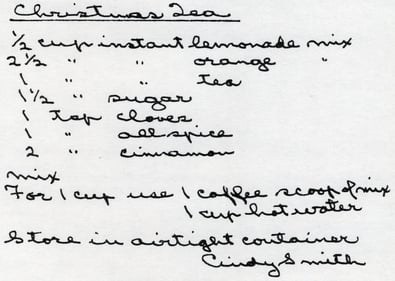 Christmas Tea
1/2 cup instant lemonade mix
2 1/2 " " orange "
1 " " tea
1 1/2 " sugar
1 tsp cloves
1 " allspice
2 " cinnamon
mix
For 1 cup use 1 coffee scoop of mix
1 cup hot water
Store in airtight container
Cindy Smith